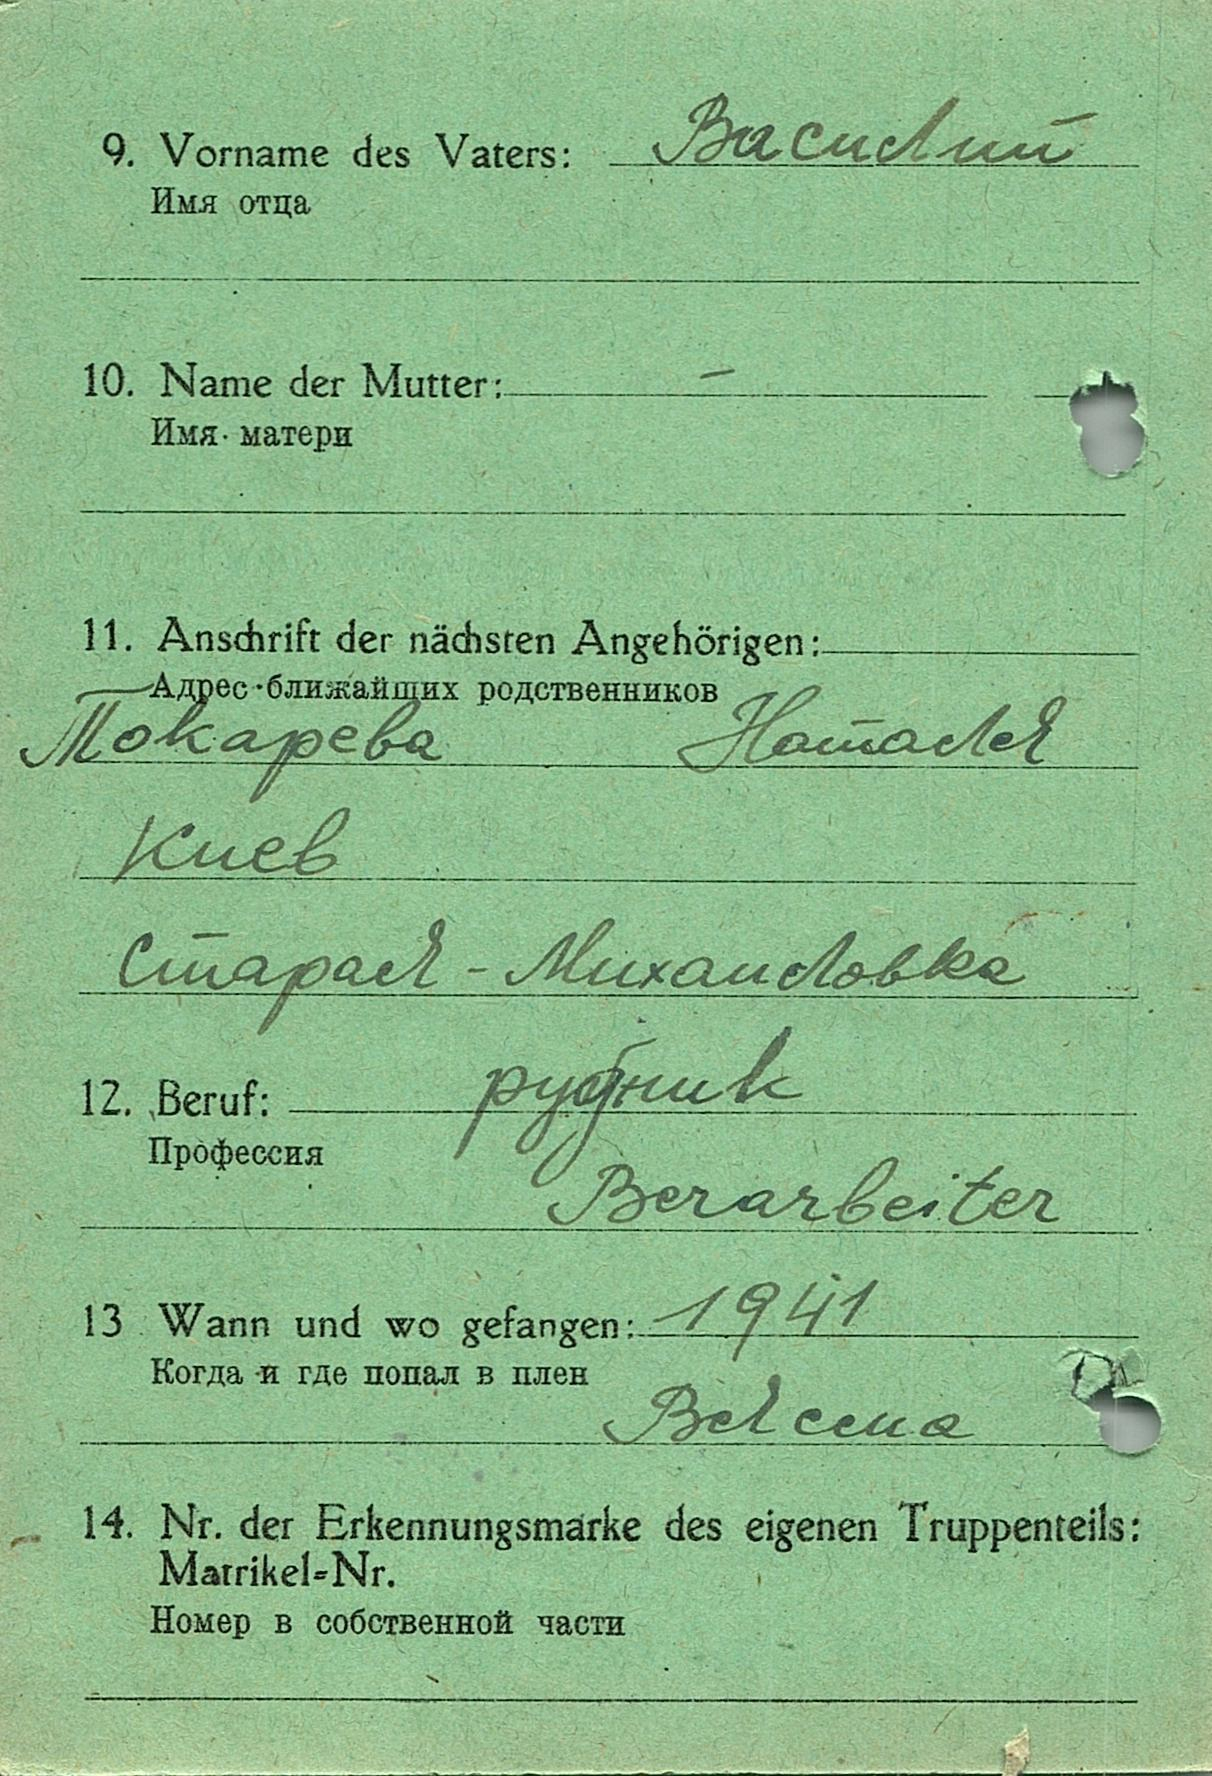 9. Vorname des Vaters: Василий
Имя отца
10. Name der Mutter: –
Имя матери
11. Anschrift der nächsten Angehörigen:
Адрес ближайших родственников
Токарева Наталя
Киев
Старая - Михаиловка
12. Beruf: рудник
Профессия
Berarbeiter
13 Wann und wo gefangen: 1941
Когда и где попал в плен
14. Nr. der Erkennungsmarke des eigenen Truppenteils:
Matrikel-Nr.
Номер в собственной части